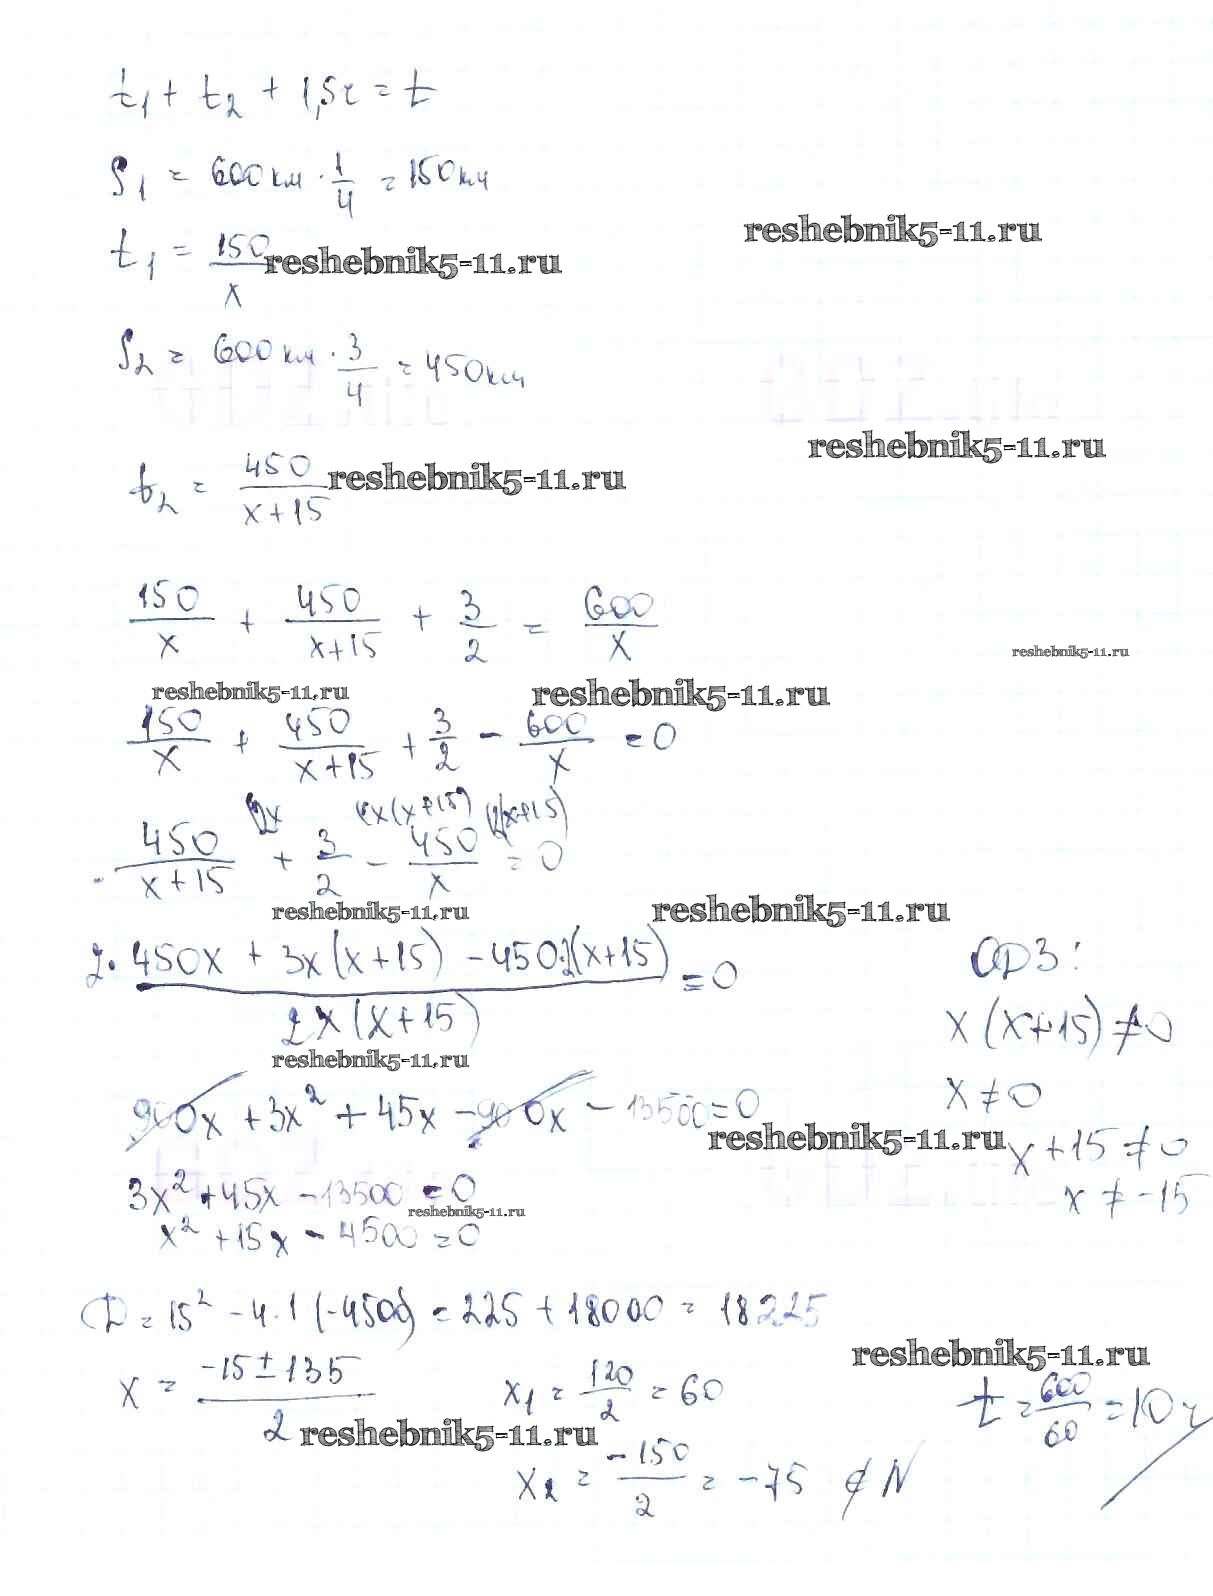 t₁ + t₂ + 1,5ч = t
S₁ = 600км · 1/4 = 150км
reshebnik5-11.ru
t₁ = 150/x
reshebnik5-11.ru
S₂ = 600км · 3/4 = 450км
reshebnik5-11.ru
t₂ = 450/(x+15)
reshebnik5-11.ru
150/x + 450/(x+15) + 3/2 = 600/x
reshebnik5-11.ru
reshebnik5-11.ru
reshebnik5-11.ru
150/x + 450/(x+15) + 3/2 - 600/x = 0
(2x (x(x+15) (2(x+15)
450/(x+15) + 3/2 - 450/x = 0
reshebnik5-11.ru
reshebnik5-11.ru
(2·450x + 3x(x+15) - 450·2(x+15))/(2x(x+15)) = 0
ОДЗ:
x(x+15) ≠ 0
reshebnik5-11.ru
x ≠ 0
900x + 3x² + 45x - 900x - 13500 = 0
reshebnik5-11.ru
x+15 ≠ 0
3x² + 45x - 13500 = 0
x ≠ -15
reshebnik5-11.ru
x² + 15x - 4500 = 0
D = 15² - 4·1(-4500) = 225 + 18000 = 18225
reshebnik5-11.ru
x = (-15 ± 135)/2
x₁ = 120/2 = 60
t = 600/60 = 10ч
reshebnik5-11.ru
x₂ = -150/2 = -75 ∉ N